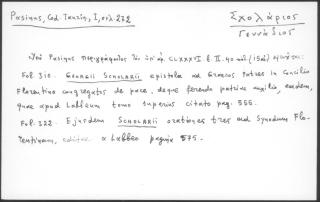 Pasinus, Cod. Taurin, I, σελ. 272
Σχολάριος
Γεννάδιος
Ὑπὸ Pasinus περιγράφεται ὑπ' ἀρ. CLXXXVII b. II. 40 (15ου) αἰῶνος:
Fol. 310. Georgii Scholarii epistola ad Graecos Patres in Concilio
Florentino congregatos de pace, deque ferenda patriae auxilio, eadem,
quae apud Labbeum tomo superius citato pag. 555.
Fol. 322. Ejusdem Scholarii orationes tres ad Synodum Flo-
rentinam, editae a Labbeo pagina 575.